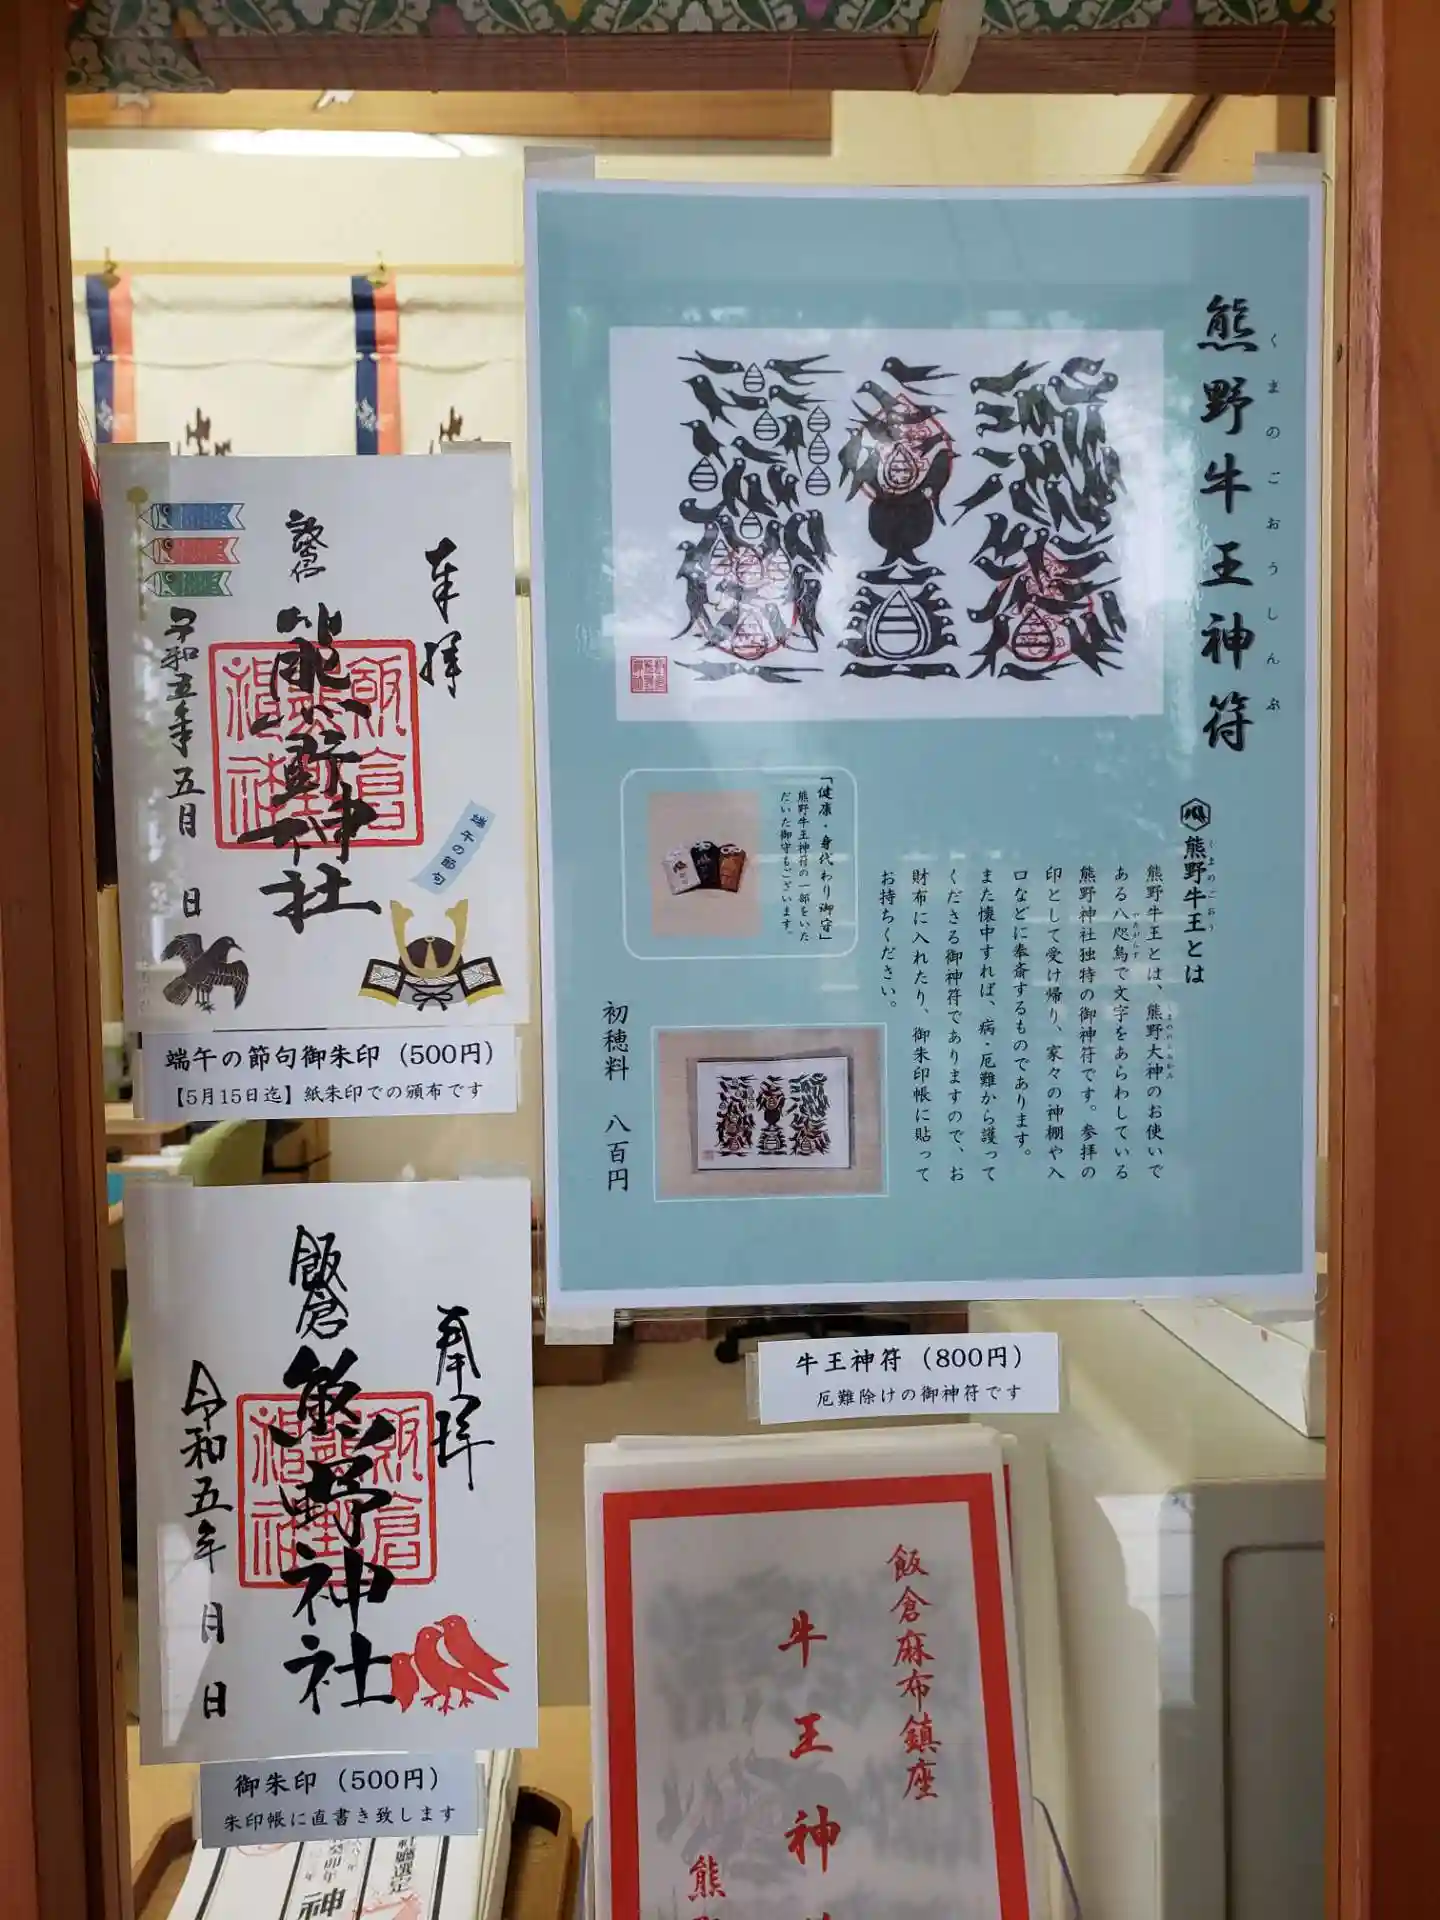 熊野牛王神符
くまのごおうしんぷ
熊野牛王とは
くまのごおう
熊野牛王とは、熊野大神のお使いで
ある八咫烏で文字をあらわしている
熊野神社独特の御神符です。参拝の
印として受け帰り、家々の神棚や入
口などに奉斎するものであります。
また懐中すれば、病・厄難から護って
くださる御神符でありますので、お
財布に入れたり、御朱印帳に貼って
お持ちください。
「健康・身代わり御守」
熊野牛王神符の一部をいた
だいた御守もございます。
初穂料 八百円
奉拝
飯倉
熊野神社
令和五年五月 日
端午の節句
端午の節句御朱印（500円）
【5月15日迄】紙朱印での頒布です
奉拝
飯倉
熊野神社
令和五年 月 日
御朱印（500円）
朱印帳に直書き致します
牛王神符（800円）
厄難除けの御神符です
飯倉麻布鎮座
牛王神
熊